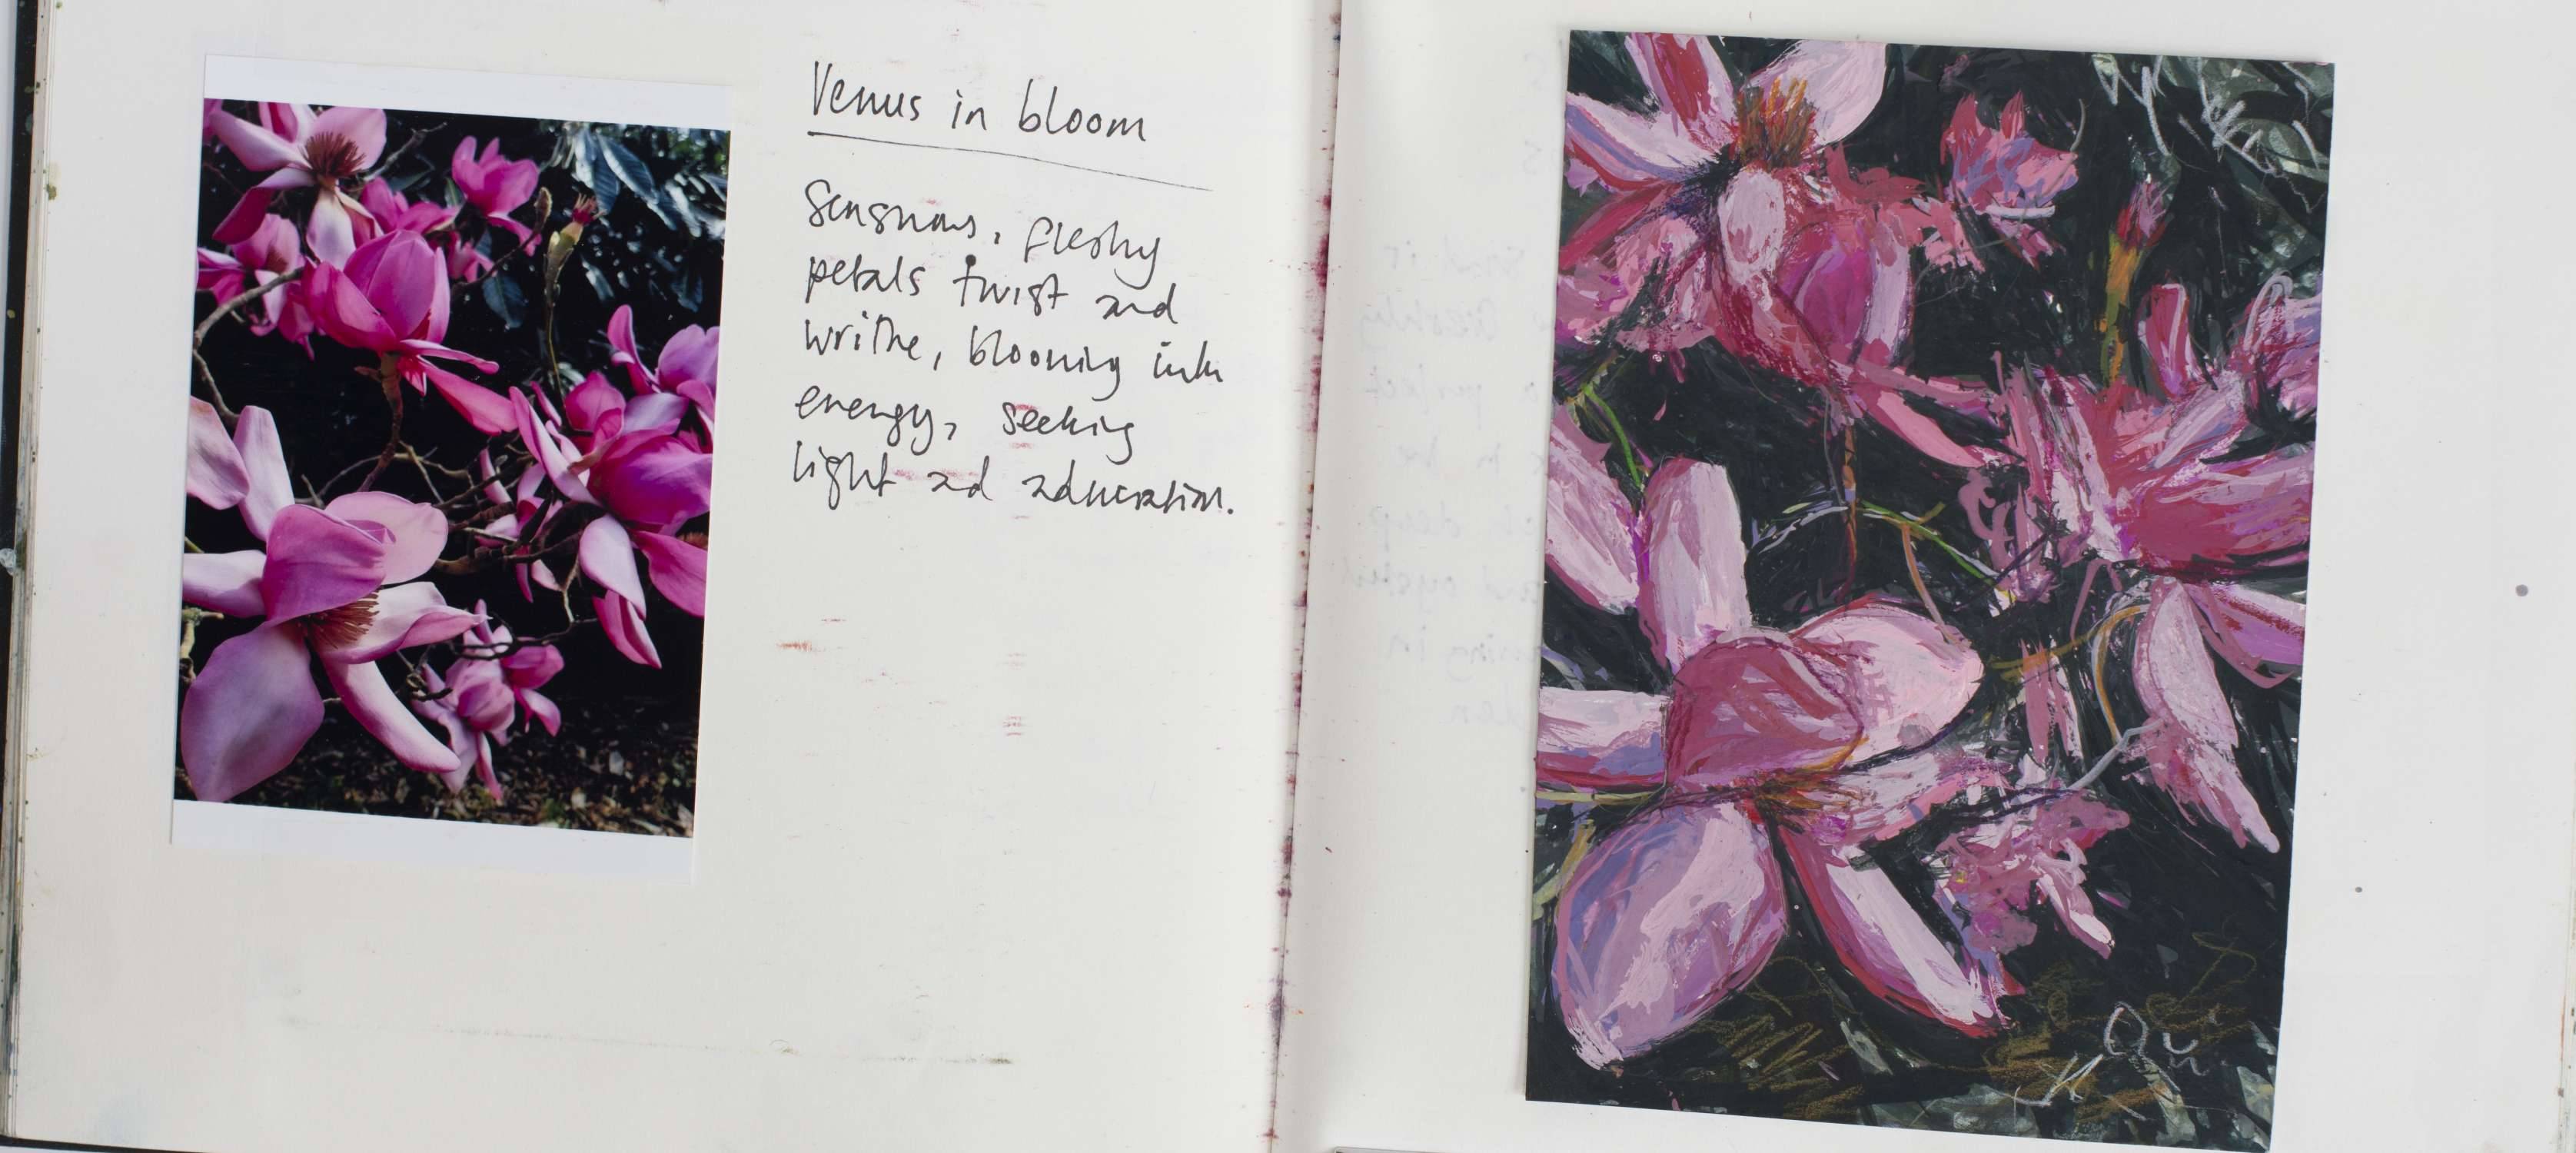 Venus in bloom
Sensuous, fleshy
petals twist and
writhe, blooming into
energy, seeking
light and